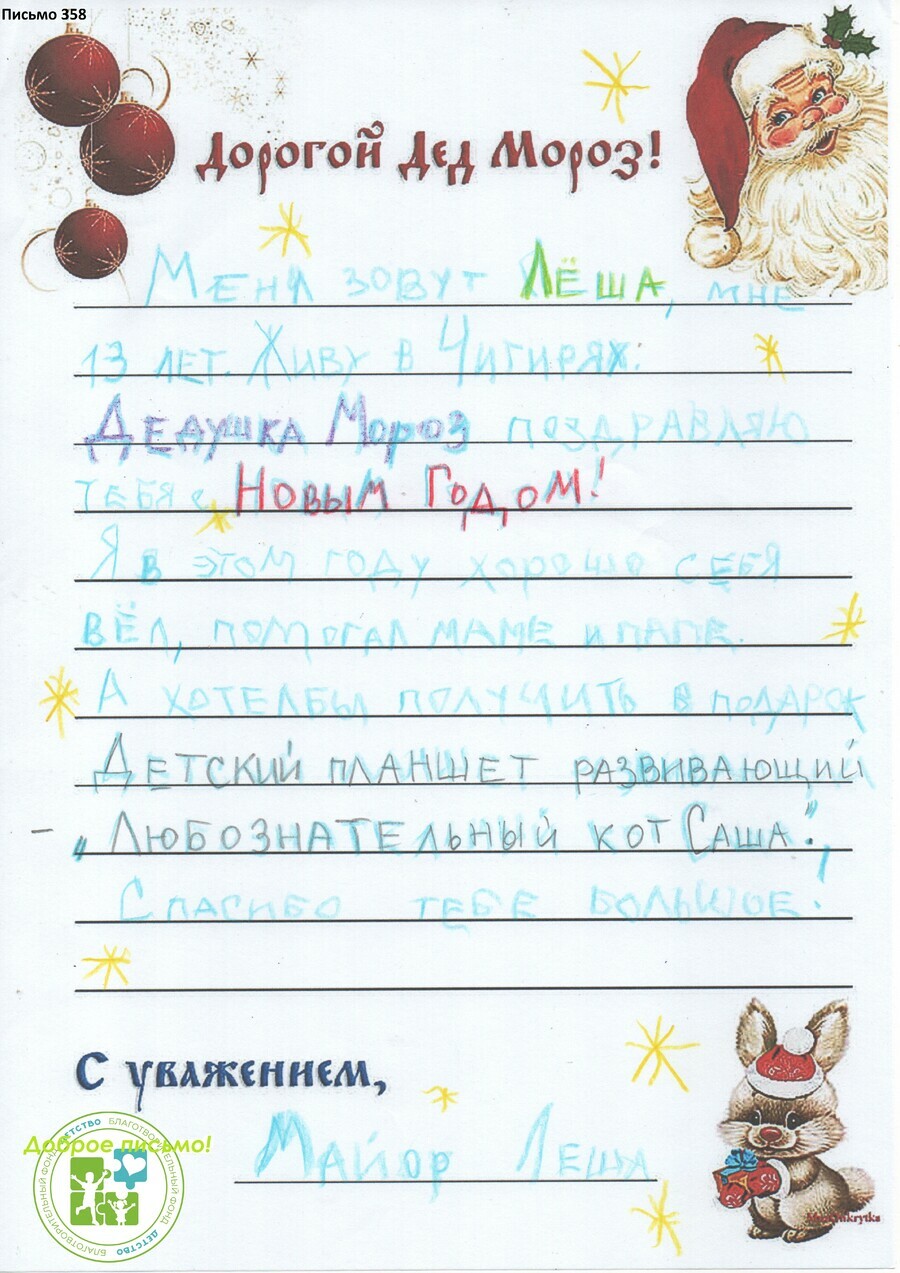 Письмо 358
Дорогой Дед Мороз!
Меня зовут Лёша, мне
13 лет. Живу в Чигирях.
Дедушка Мороз поздравляю
тебя с Новым Годом!
Я в этом году хорошо себя
вёл, помогал маме и папе.
А хотелбы получить в подарок
Детский планшет развивающий
- "Любознательный кот Саша".
Спасибо тебе большое!
С уважением,
Майор Леша
Доброе письмо!
БЛАГОТВОРИТЕЛЬНЫЙ ФОНД ДЕТСТВО БЛАГОТВОРИТЕЛЬНЫЙ ФОНД ДЕТСТВО